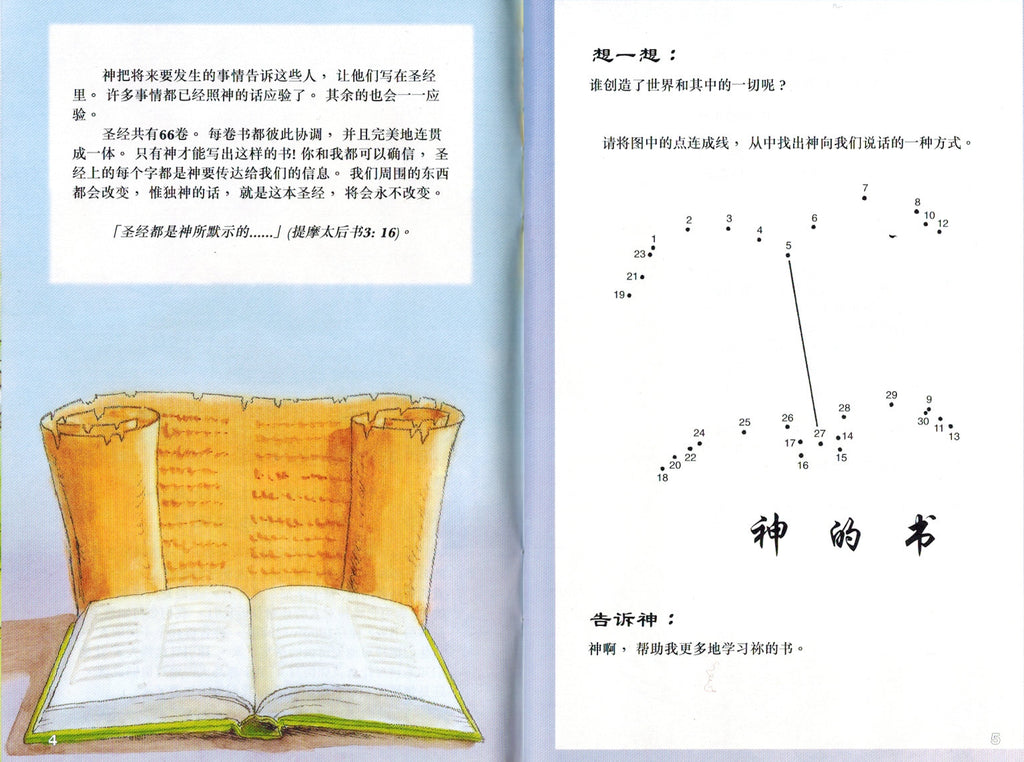 神把将来要发生的事情告诉这些人，让他们写在圣经
里。许多事情都已经照神的话应验了。其余的也会一一应
验。
圣经共有66卷。每卷书都彼此协调，并且完美地连贯
成一体。只有神才能写出这样的书!你和我都可以确信，圣
经上的每个字都是神要传达给我们的信息。我们周围的东西
都会改变，惟独神的话，就是这本圣经，将会永不改变。
「圣经都是神所默示的......」(提摩太后书3: 16)。
4
想一想：
谁创造了世界和其中的一切呢？
请将图中的点连成线，从中找出神向我们说话的一种方式。
1
2
3
4
5
6
7
8
10
12
23
21
19
29
9
28
26
25
24
27
14
17
30
11
13
22
20
18
16
15
神的书
告诉神：
神啊，帮助我更多地学习祢的书。
5